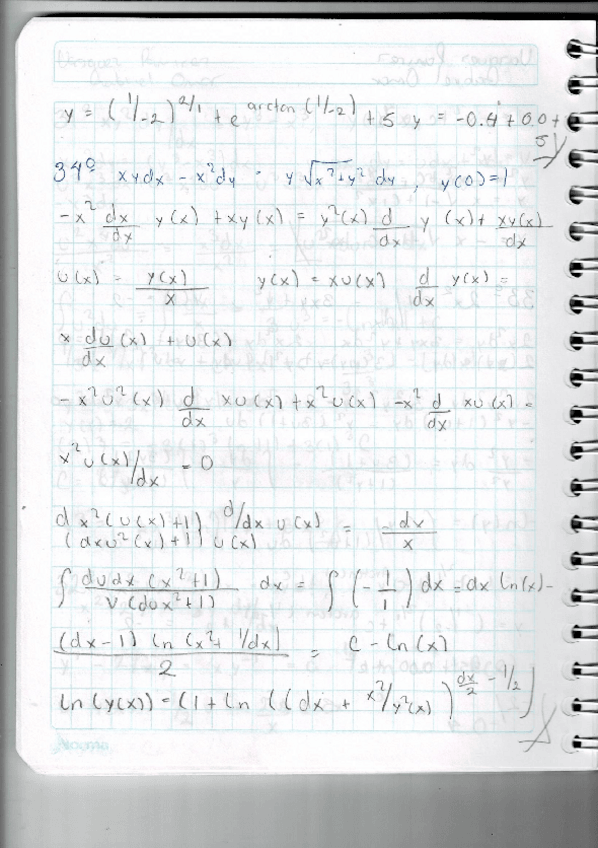 y = (1/-2)^2/1 + e^arctan(1/-2) + 5 y = -0.4 + 0.0 +
5
34º xydx - x²dy = y√x²+y² dy, y(0)=1
-x² dx/dx y(x) + xy(x) = y²(x) d/dx y(x) + xy(x)/dx
u(x) = y(x)/x y(x) = xu(x) d/dx y(x) =
x du/dx (x) + u(x)
-x²u²(x) d/dx xu(x) + x²u(x) - x² d/dx xu(x) =
x²u(x)/dx = 0
d x²(u(x)+1) d/dx u(x) / (dxu²(x)+1) u(x) = - dx/x
∫ dudx (x²+1) / v(dux²+1) dx = ∫ (-1/1) dx = dx ln(x) -
(dx-1) ln(x²+ 1/dx) / 2 = c - ln(x)
ln(y(x)) = (1 + ln((dx + x²/y²(x))^dx/2 - 1/2)
Norma